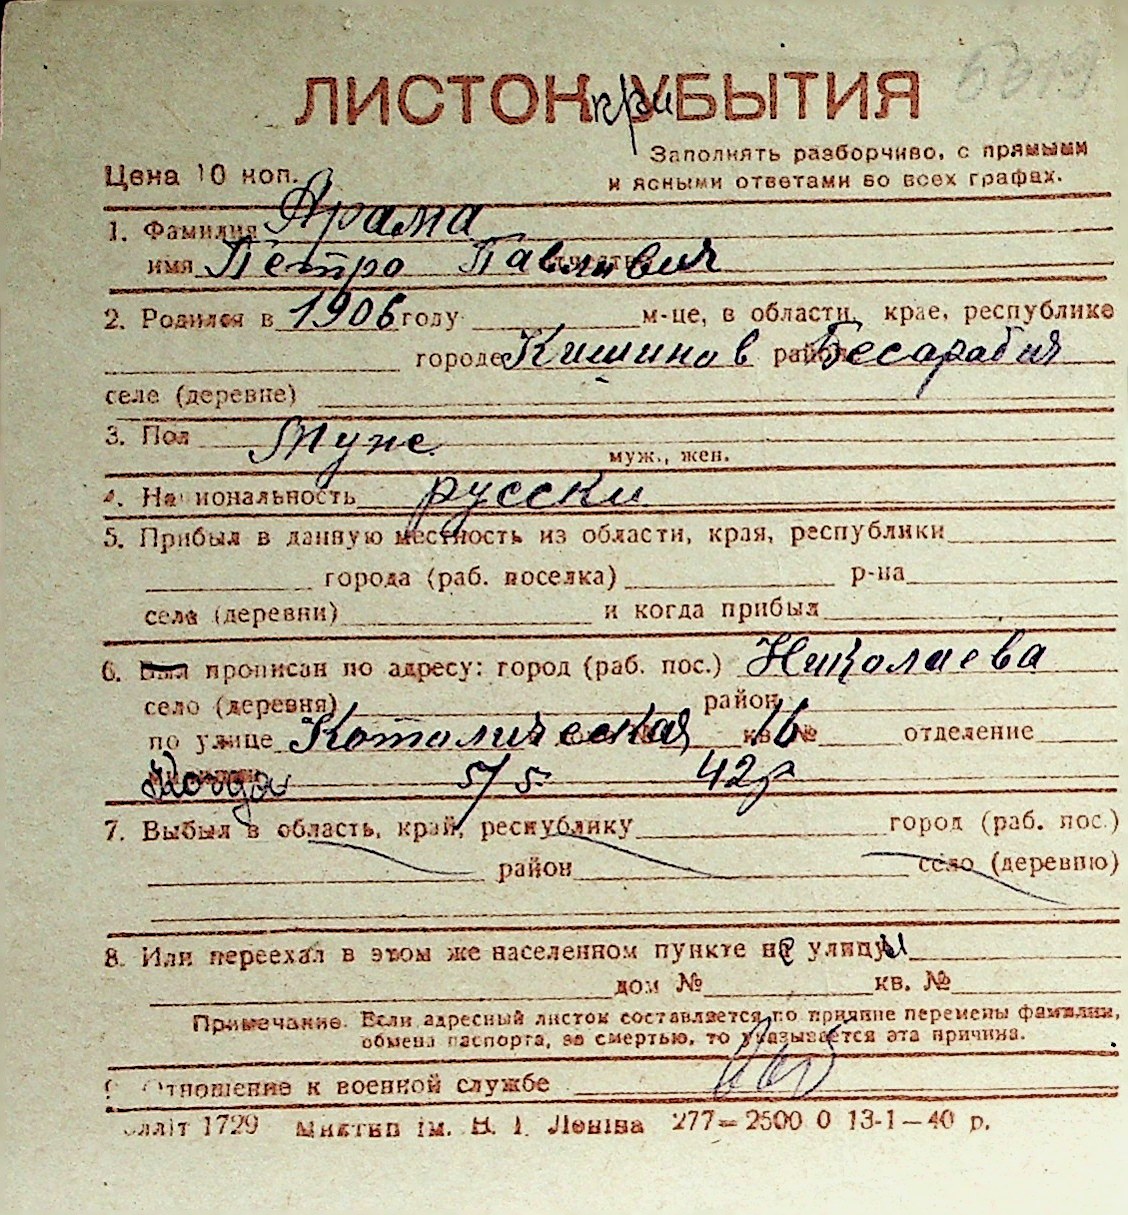 5319
ЛИСТОК при УБЫТИЯ
Заполнять разборчиво, с прямыми
Цена 10 коп.
и ясными ответами во всех графах.
1. Фамилия Арама
имя Петро Павлович
2. Родился в 1906 году м-це, в области, крае, республике
городе Кишинов район Бесарабия
селе (деревне)
3. Пол Муже
муж., жен.
4. Национальность русски
5. Прибыл в данную местность из области, края, республики
города (раб. поселка) р-на
села (деревни) и когда прибыл
6. Был прописан по адресу: город (раб. пос.) Николаева
село (деревня) район
по улице Католическая кв. № 16 отделение
Когда 5/5 42р
7. Выбыл в область, край, республику город (раб. пос.)
район село (деревню)
8. Или переехал в этом же населенном пункте не улицы
дом № кв. №
Примечание. Если адресный листок составляется по причине перемены фамилии,
обмена паспорта, за смертью, то указывается эта причина.
9. Отношение к военной службе
літ 1729 Миктип ім. В. І. Леніна 277—2500 0 13-1—40 р.